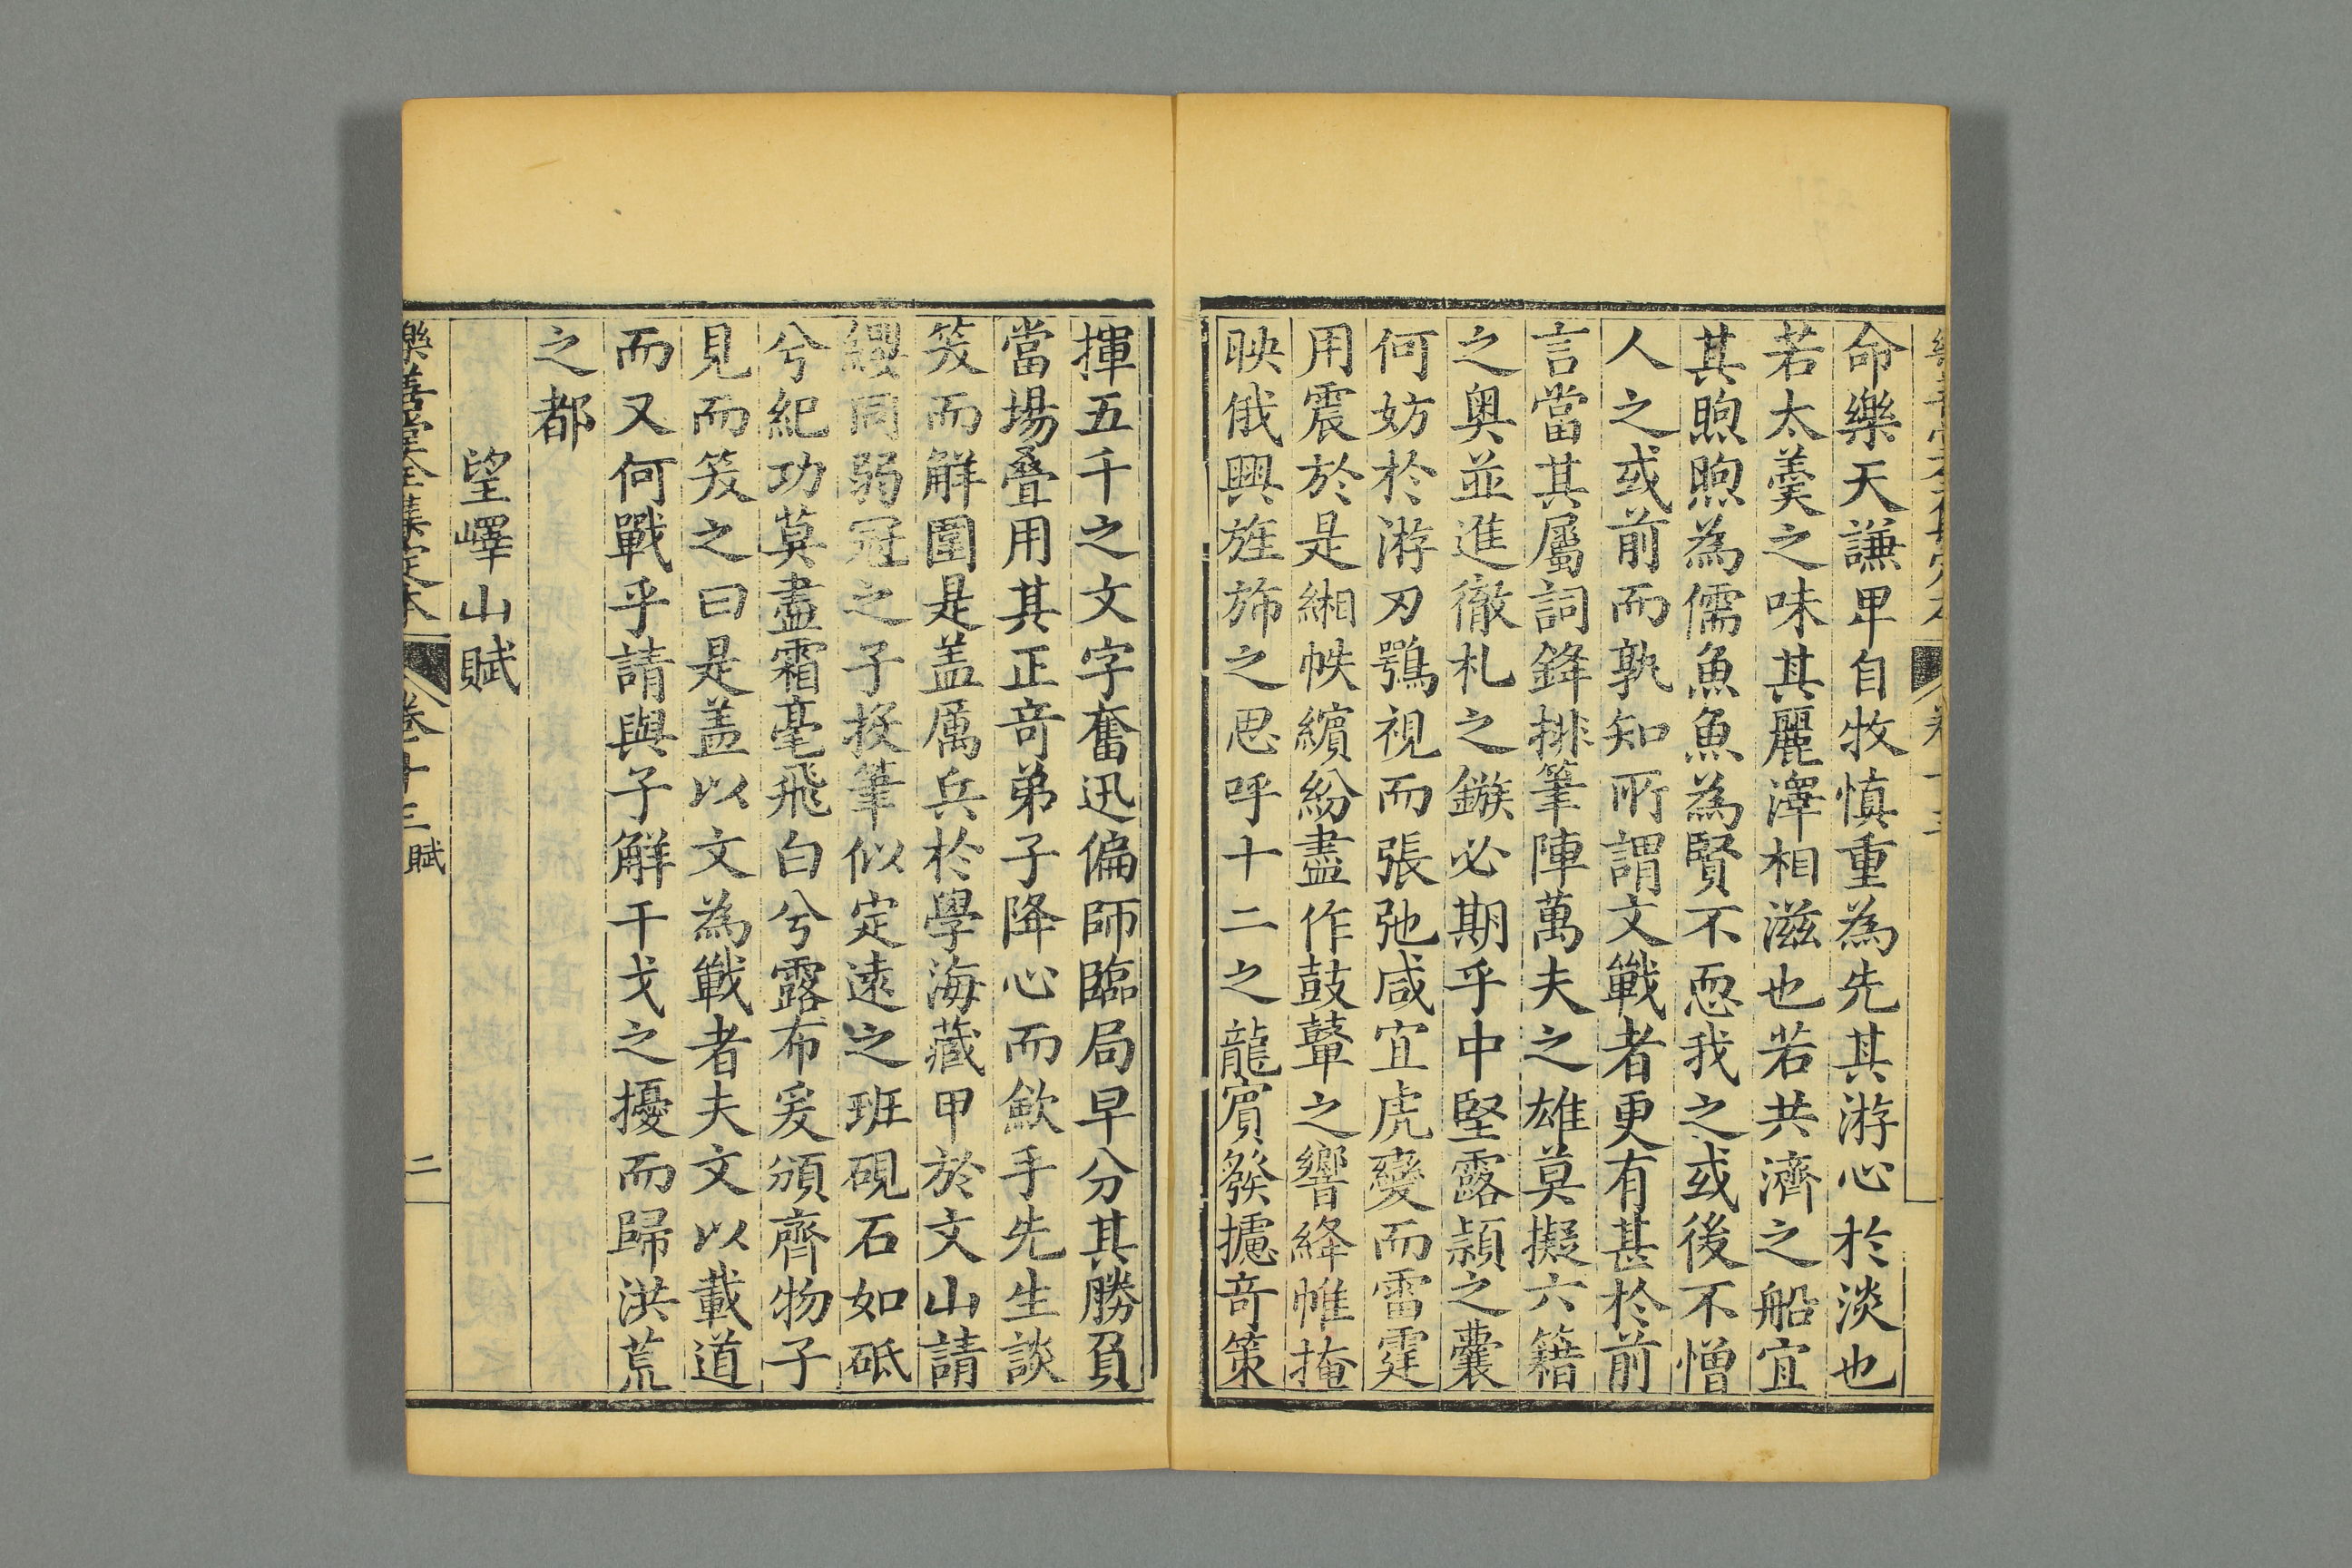 命樂天謙卑自牧慎重為先其游心於淡也
若太羹之味其麗澤相滋也若共濟之船宜
其煦煦為儒魚魚為賢不恧我之或後不憎
人之或前而孰知所謂文戰者更有甚於前
言當其屬詞鋒排筆陣萬夫之雄莫擬六籍
之奥並進徹札之鏃必期乎中堅露潁之囊
何妨於游刃鶚視而張弛咸宜虎變而雷霆
用震於是緗帙繽紛盡作鼓鼙之響絳帷掩
映俄興旌斾之思呼十二之龍賓發攄奇策
揮五千之文字奮迅偏師臨局早分其勝負
當場疊用其正奇弟子降心而歛手先生談
笑而解圍是盖厲兵於學海藏甲於文山請
纓同弱冠之子投筆似定遠之班硯石如砥
兮紀功莫盡霜毫飛白兮露布爰頒齊物子
見而笑之曰是盖以文為戰者夫文以載道
而又何戰乎請與子解干戈之擾而歸洪荒
之都
望嶧山賦
樂善堂全集定本 卷十三 賦 二